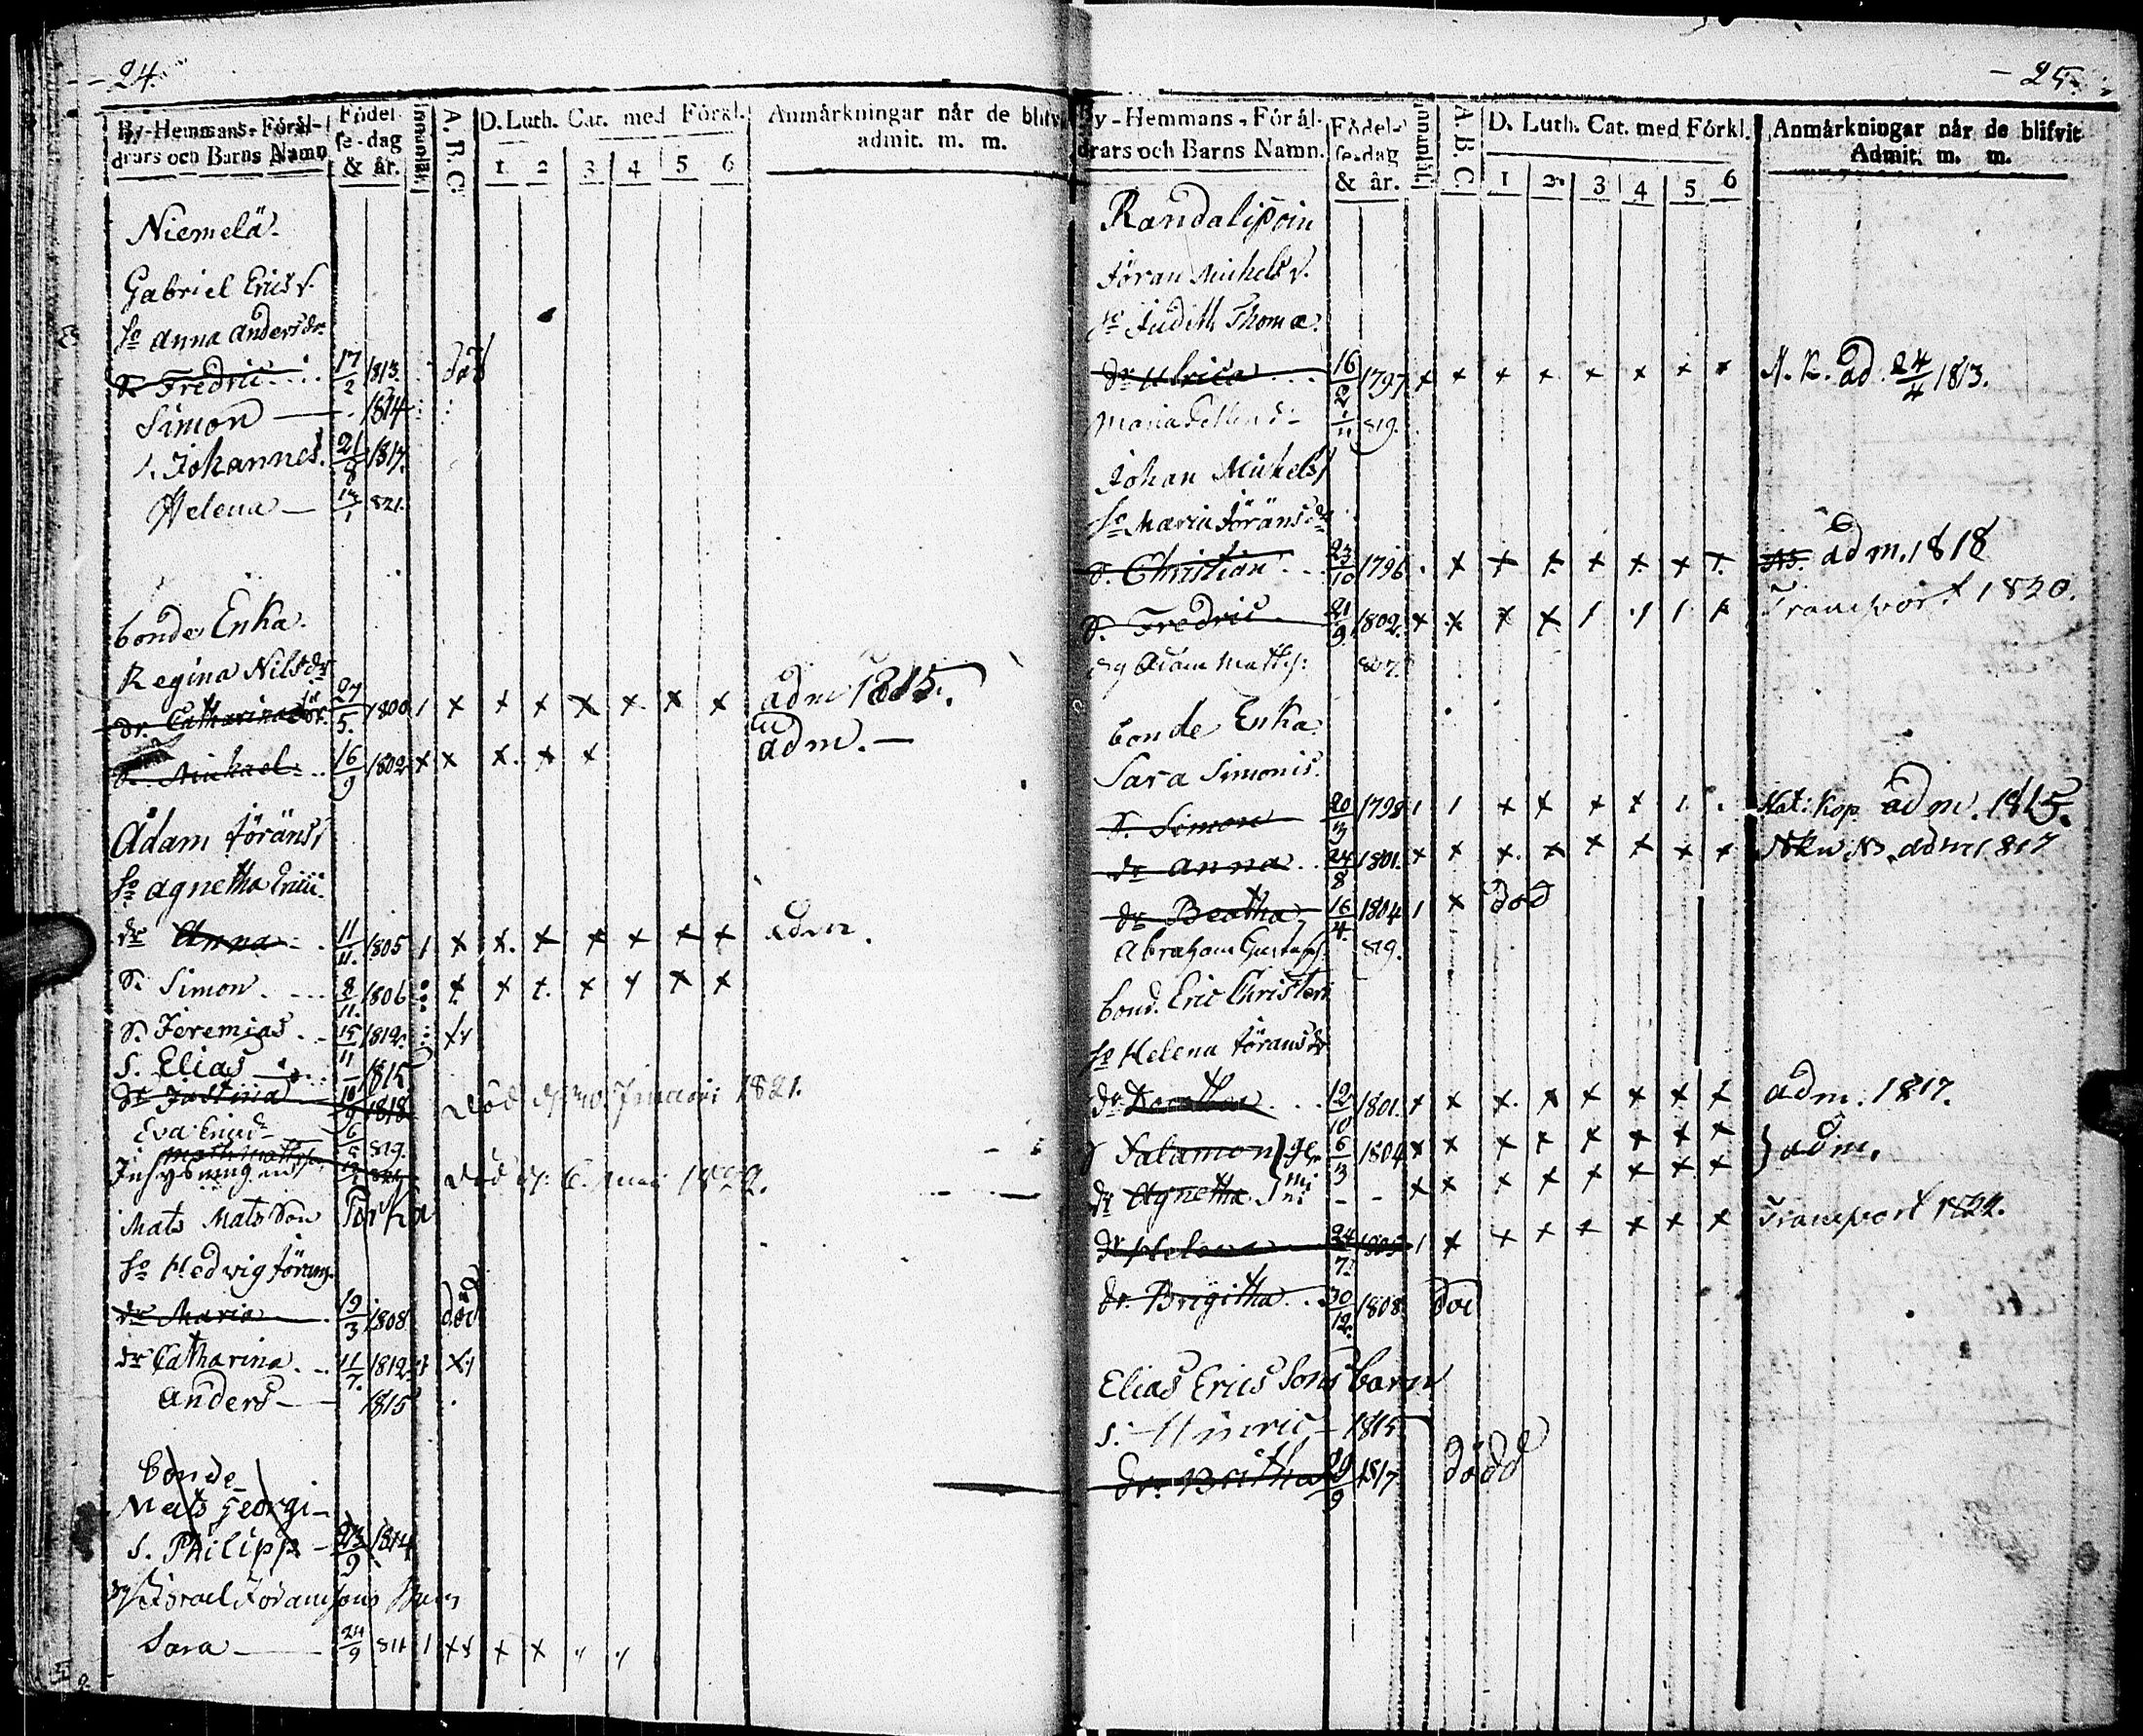 24.
By-Hemmans-Föräl-drars och Barns Namn
Födelse-dag & år.
Innanläs.
A. B. C.
D. Luth. Cat. med Förkl.
1 2 3 4 5 6
Anmärkningar når de blifvit admit. m. m.
Niemelä.
Gabriel Erics s.
ho Anna Andersdr.
S. Fredric 17/2 1813. död
Simon — 1814
s. Johannes. 21/8 1817.
Helena — 13/1 821.
bonde Enka.
Regina Nilsdr
dr. Catharina 27/5. 1800 1 x x x x x x x adm 1815.
S. Michael 16/9 1802 x x x. x x adm. —
Adam Jöräns s
ho Agnetha Erici.
dr Anna 11/11. 1805 1 x x. x x x x x adm.
S. Simon. 8/11. 1806 x x x. x x x x
S. Jeremias 15/11 1812.
S. Elias — 1815.
dr Justina 10/9 1818 död Januari 1821.
Eva 6/5 819.
Inhysningen död d. 6. 1822.
Mats Mats Son Torka
ho Hedvig Jörans.
dr Maria 19/3 1808 död
dr Catharina 11/7. 1812
Anders — 1815
bonde
Mats Georgi
s. Philipp 23/9 1814
Israel Joransons Barn
Sara — 24/9 811 1 x x x x
25.
By-Hemmans-Förål-drars och Barns Namn.
Födelse-dag & år.
Innanläs.
A. B. C.
D. Luth. Cat. med Förkl.
1 2 3 4 5 6
Anmårkningar når de blifvit Admit. m. m.
Jöran Michels s.
ho Judith Thomæ.
dr Ulrica 16/2 1797 x x x x x x x x N. K. ad. 24/4 1813.
Maria 1/11 819.
Johan Michels s
ho Maria Jöräns dr
S. Christian 23/10 1796 . x x x x x x x adm. 1818
S. Fredric 21/9 1802. x x x x 1 1 1 x Transport 1820.
Adam Matts: 807.
bonde Enka
Sara Simonis.
S. Simon 20/3 1798 1 1 x x x x 1 . Nat: Kop adm. 1815.
dr Anna 24/8 1801. x x x. x x x x x adm 1817
dr Beatha 16/4. 1804 1 x död
Abraham Gustafs. 819.
bond. Eric Christers
ho Helena Jöransdr
dr Dorothea 12/10 1801. x x x. x x x x x adm. 1817.
S Salamon } ge 6/3 1804 x x x x x x x x
dr Agnetha } mi ni - - x x x x x x x x } adm.
dr Helena 24/7. 1805 1 x x x x x x x Transport 1822.
dr. Brigitha 30/12. 1808 död
Elias Erics Sons barn
s. Hinric — 1815
dr. Britha 29/9 1817 dödd